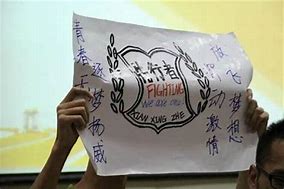 青春
逐梦扬威
先行者
FIGHTING
We are one
XIAN XING ZHE
放飞梦想
动激情